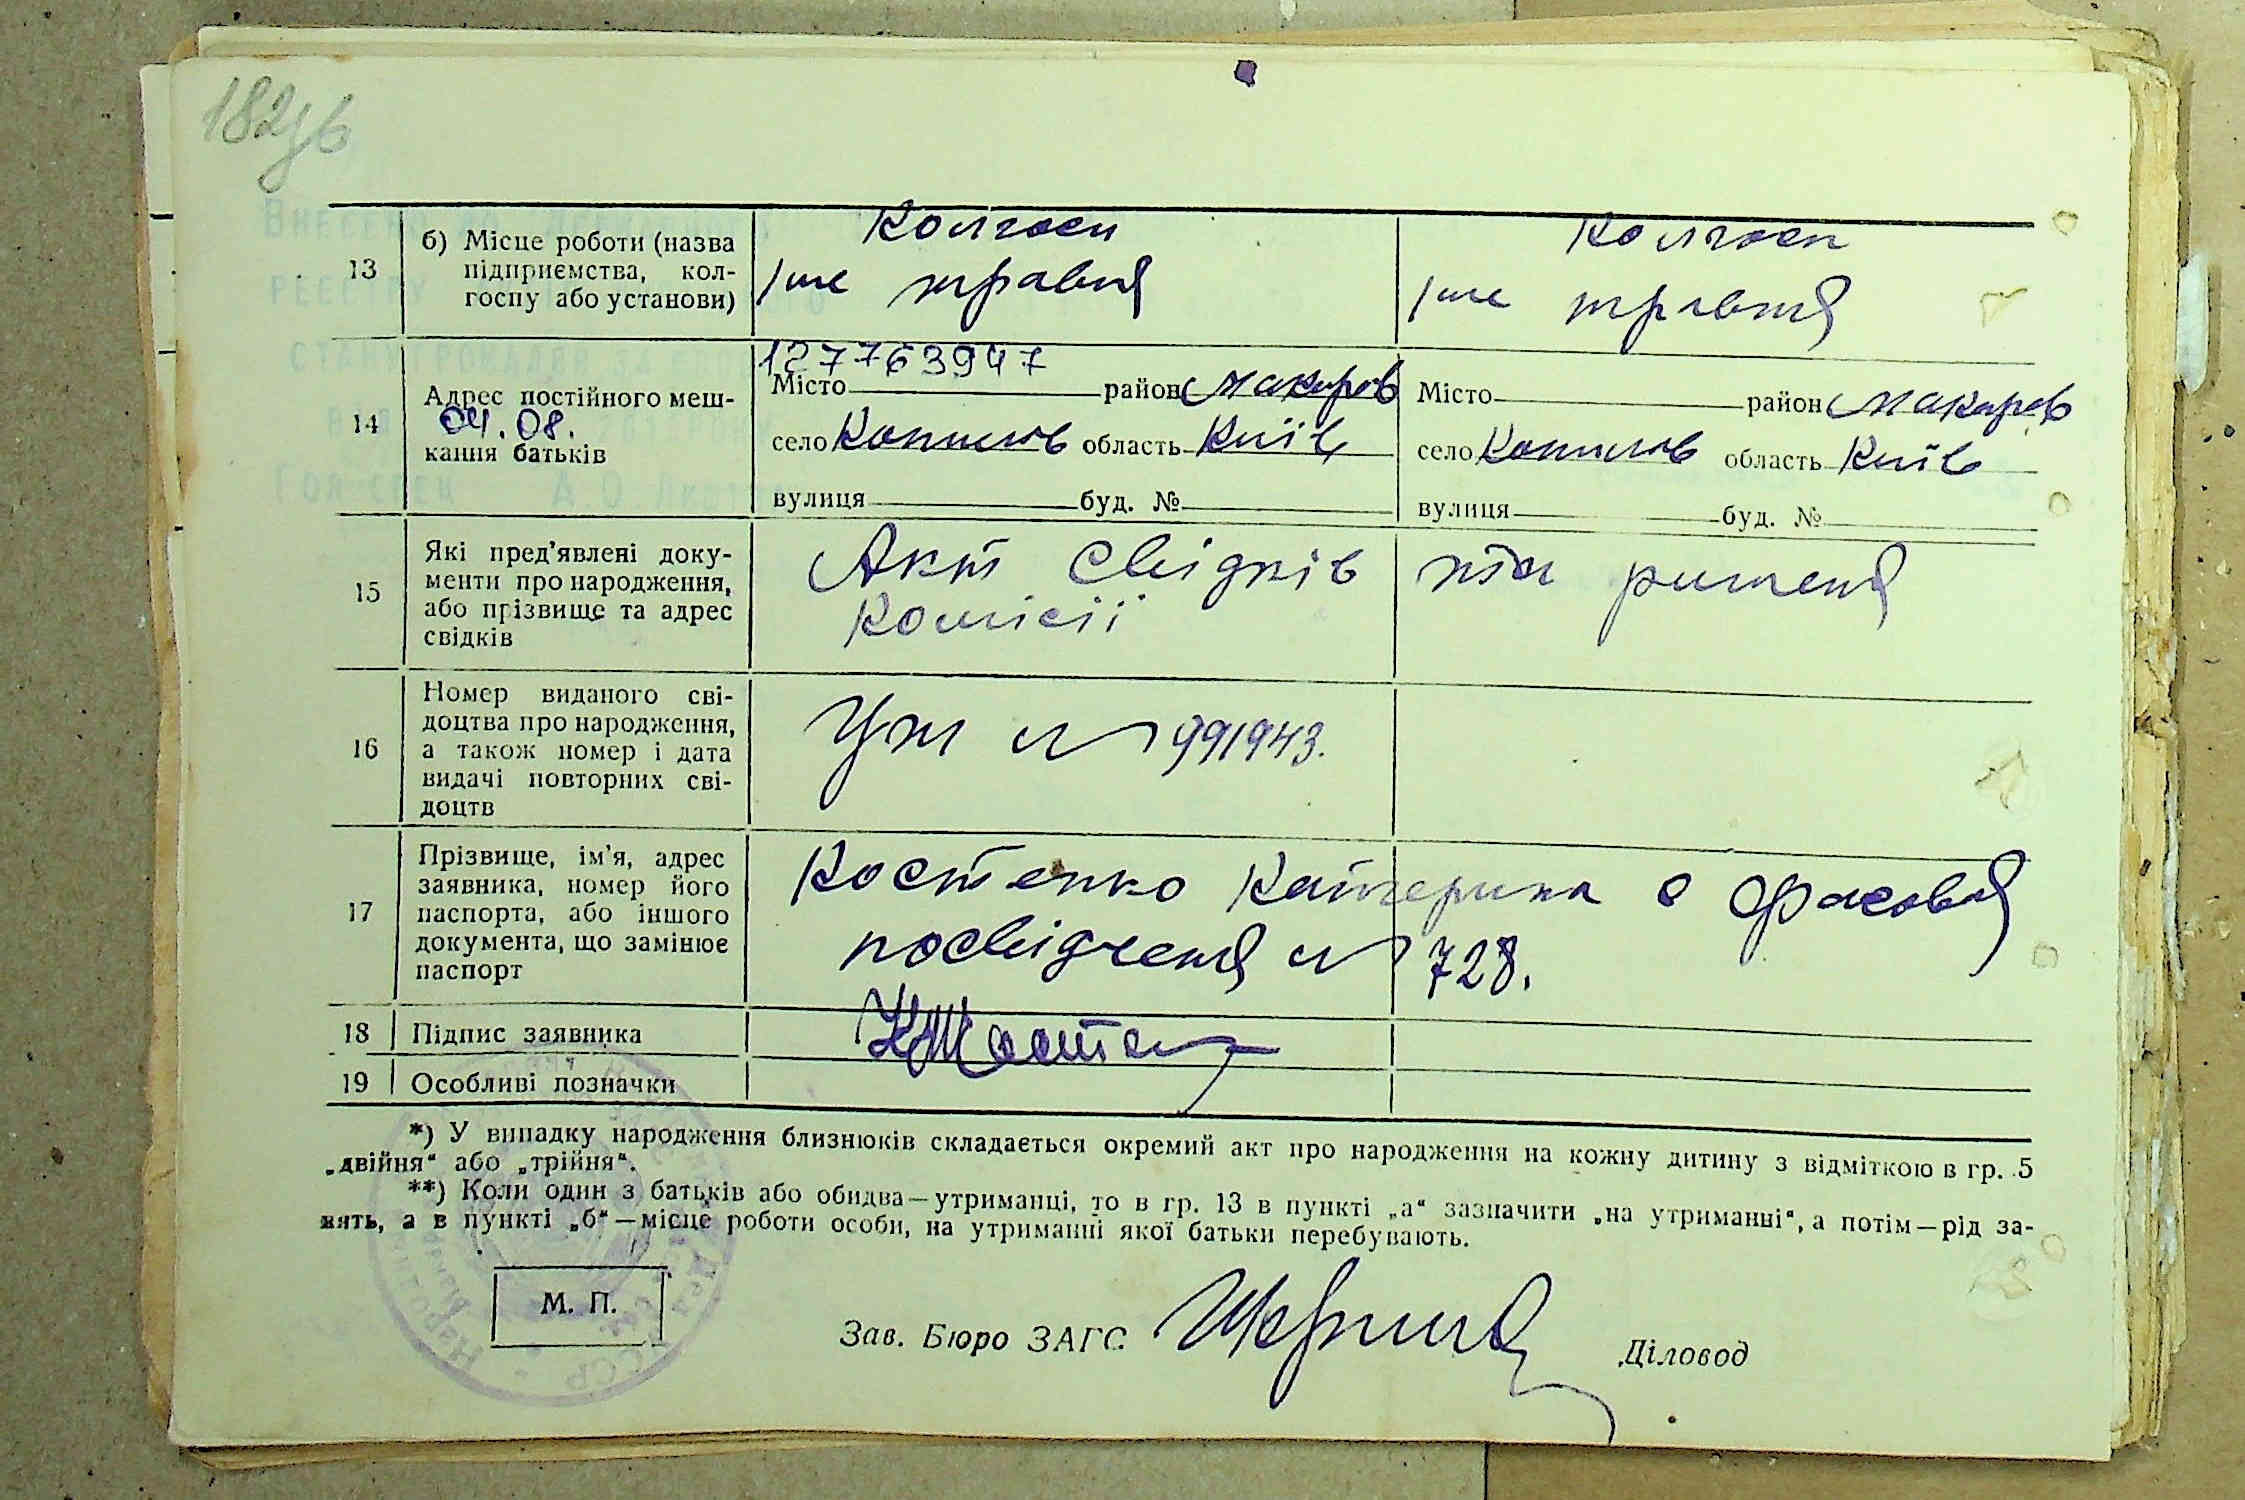 182зв
13
б) Місце роботи (назва
підприємства, кол-
госпу або установи)
Колгосп
1ше травня
Колгосп
1ше травня
127763947
14
Адрес постійного меш-
04.08.
кання батьків
Місто район Макарів
село Копилов область Київ
вулиця буд. №
Місто район Макарів
село Копилов область Київ
вулиця буд. №
15
Які пред'явлені доку-
менти про народження,
або прізвище та адрес
свідків
Акт свідків та ришеня
комісії
16
Номер виданого сві-
доцтва про народження,
а також номер і дата
видачі повторних сві-
доцтв
№ 991943.
17
Прізвище, ім'я, адрес
заявника, номер його
паспорта, або іншого
документа, що замінює
паспорт
Костенко Катерина с Фасовая
посвідченя № 728.
18 Підпис заявника
19 Особливі позначки
*) У випадку народження близнюків складається окремий акт про народження на кожну дитину з відміткою в гр. 5
„двійня“ або „трійня“.
**) Коли один з батьків або обидва—утриманці, то в гр. 13 в пункті „а“ зазначити „на утриманні“, а потім—рід за-
нять, а в пункті „б“—місце роботи особи, на утриманні якої батьки перебувають.
М. П.
Зав. Бюро ЗАГС
Діловод